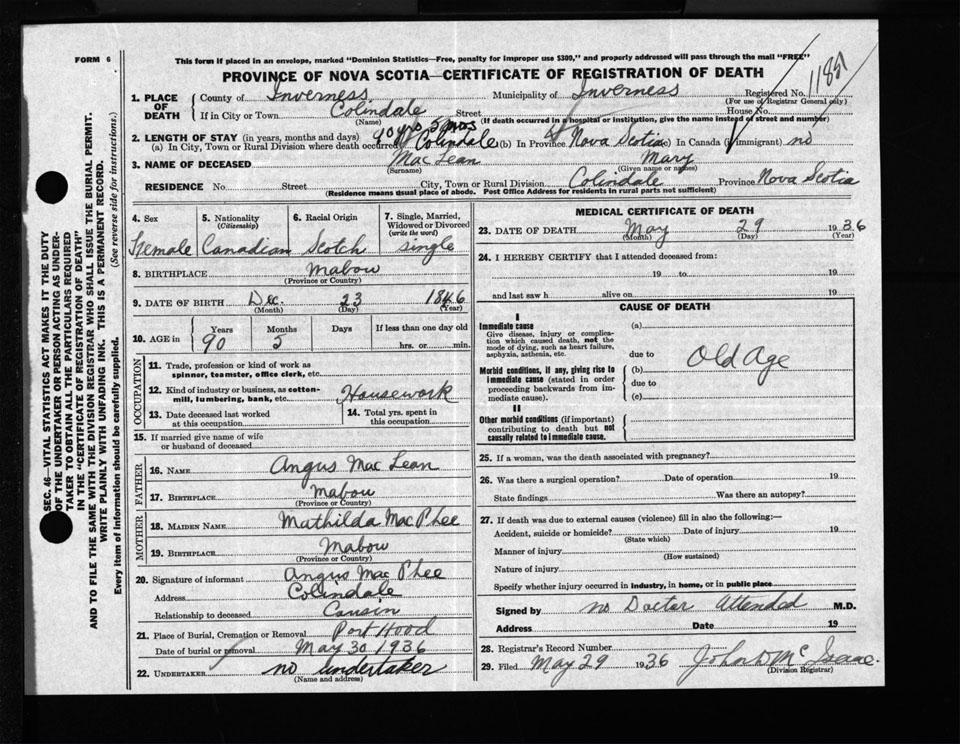 FORM 6
This form if placed in an envelope, marked "Dominion Statistics—Free, penalty for improper use $300," and properly addressed will pass through the mail "FREE"
PROVINCE OF NOVA SCOTIA—CERTIFICATE OF REGISTRATION OF DEATH
1. PLACE OF DEATH County of Inverness Municipality of Inverness Registered No. 1188
(For use of Registrar General only)
If in City or Town Colindale Street House No.
(Name) (If death occurred in a hospital or institution, give the name instead of street and number)
2. LENGTH OF STAY (in years, months and days) 90 yrs. 5 mos
(a) In City, Town or Rural Division where death occurred Colindale (b) In Province Nova Scotia (c) In Canada (if immigrant) no
3. NAME OF DECEASED MacLean Mary
(Surname) (Given name or names)
RESIDENCE No. Street City, Town or Rural Division Colindale Province Nova Scotia
(Residence means usual place of abode. Post Office Address for residents in rural parts not sufficient)
4. Sex 5. Nationality 6. Racial Origin 7. Single, Married, Widowed or Divorced
(Citizenship) (write the word)
Female Canadian Scotch Single
8. BIRTHPLACE Mabou
(Province or Country)
9. DATE OF BIRTH Dec. 23 1846
(Month) (Day) (Year)
10. AGE in Years Months Days If less than one day old
90 5 hrs. or min.
OCCUPATION
11. Trade, profession or kind of work as spinner, teamster, office clerk, etc.
12. Kind of industry or business, as cotton-mill, lumbering, bank, etc. Housework
13. Date deceased last worked at this occupation 14. Total yrs. spent in this occupation
15. If married give name of wife or husband of deceased
FATHER
16. NAME Angus MacLean
17. BIRTHPLACE Mabou
(Province or Country)
MOTHER
18. MAIDEN NAME Mathilda MacPhee
19. BIRTHPLACE Mabou
(Province or Country)
20. Signature of informant Angus MacPhee
Address Colindale
Relationship to deceased Cousin
21. Place of Burial, Cremation or Removal Port Hood
Date of burial or removal May 30 1936
22. UNDERTAKER no Undertaker
(Name and address)
MEDICAL CERTIFICATE OF DEATH
23. DATE OF DEATH May 29 1936
(Month) (Day) (Year)
24. I HEREBY CERTIFY that I attended deceased from:
19 to 19
and last saw h alive on 19
CAUSE OF DEATH
I
Immediate cause
Give disease, injury or complication which caused death, not the mode of dying, such as heart failure, asphyxia, asthenia, etc.
(a)
due to
Morbid conditions, if any, giving rise to immediate cause (stated in order proceeding backwards from immediate cause).
(b) Old Age
due to
(c)
II
Other morbid conditions (if important) contributing to death but not causally related to immediate cause.
25. If a woman, was the death associated with pregnancy?
26. Was there a surgical operation? Date of operation 19
State findings Was there an autopsy?
27. If death was due to external causes (violence) fill in also the following:—
Accident, suicide or homicide? Date of injury 19
(State which)
Manner of injury
(How sustained)
Nature of injury
Specify whether injury occurred in industry, in home, or in public place
Signed by no Doctor Attended M.D.
Address Date 19
28. Registrar's Record Number
29. Filed May 29 1936 John D McIsaac.
(Division Registrar)
SEC. 46—VITAL STATISTICS ACT MAKES IT THE DUTY
OF THE UNDERTAKER OR PERSON ACTING AS UNDER-
TAKER TO OBTAIN ALL THE PARTICULARS REQUIRED
IN THE "CERTIFICATE OF REGISTRATION OF DEATH"
AND TO FILE THE SAME WITH THE DIVISION REGISTRAR WHO SHALL ISSUE THE BURIAL PERMIT.
WRITE PLAINLY WITH UNFADING INK. THIS IS A PERMANENT RECORD.
Every item of Information should be carefully supplied. (See reverse side for instructions.)